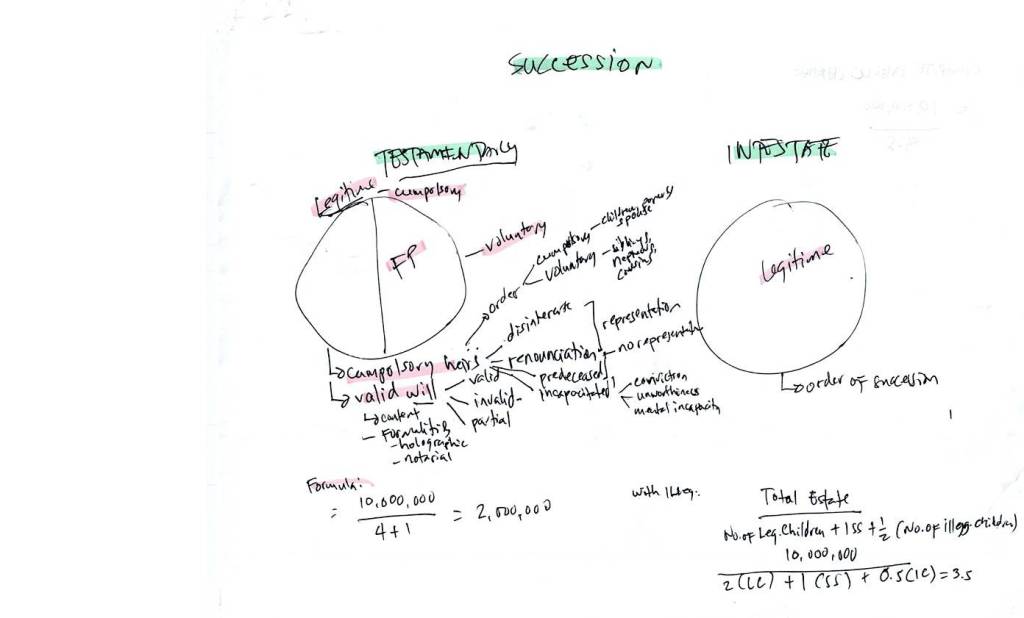 SUCCESSION
TESTAMENDARY
INTESTATE
Legitime - cumpolsory
FP
voluntary
order
cumpolsory - children, parents, spouse
voluntary - siblings, nephews, cousins
Legitime
cumpolsory heirs
disinterate
renounciation
predeceased
incapacitated
representation
no representation
conviction
unworthiness
mental incapacity
valid will
valid
invalid
partial
content
- Formalities
- holographic
- notarial
order of succession
Formula:
= 10,000,000 / 4+1 = 2,000,000
with Illeg:
Total Estate
No. of Leg. Children + 1SS + 1/2 (No. of illeg. children)
10,000,000
2(LC) + 1(SS) + 0.5(IC) = 3.5